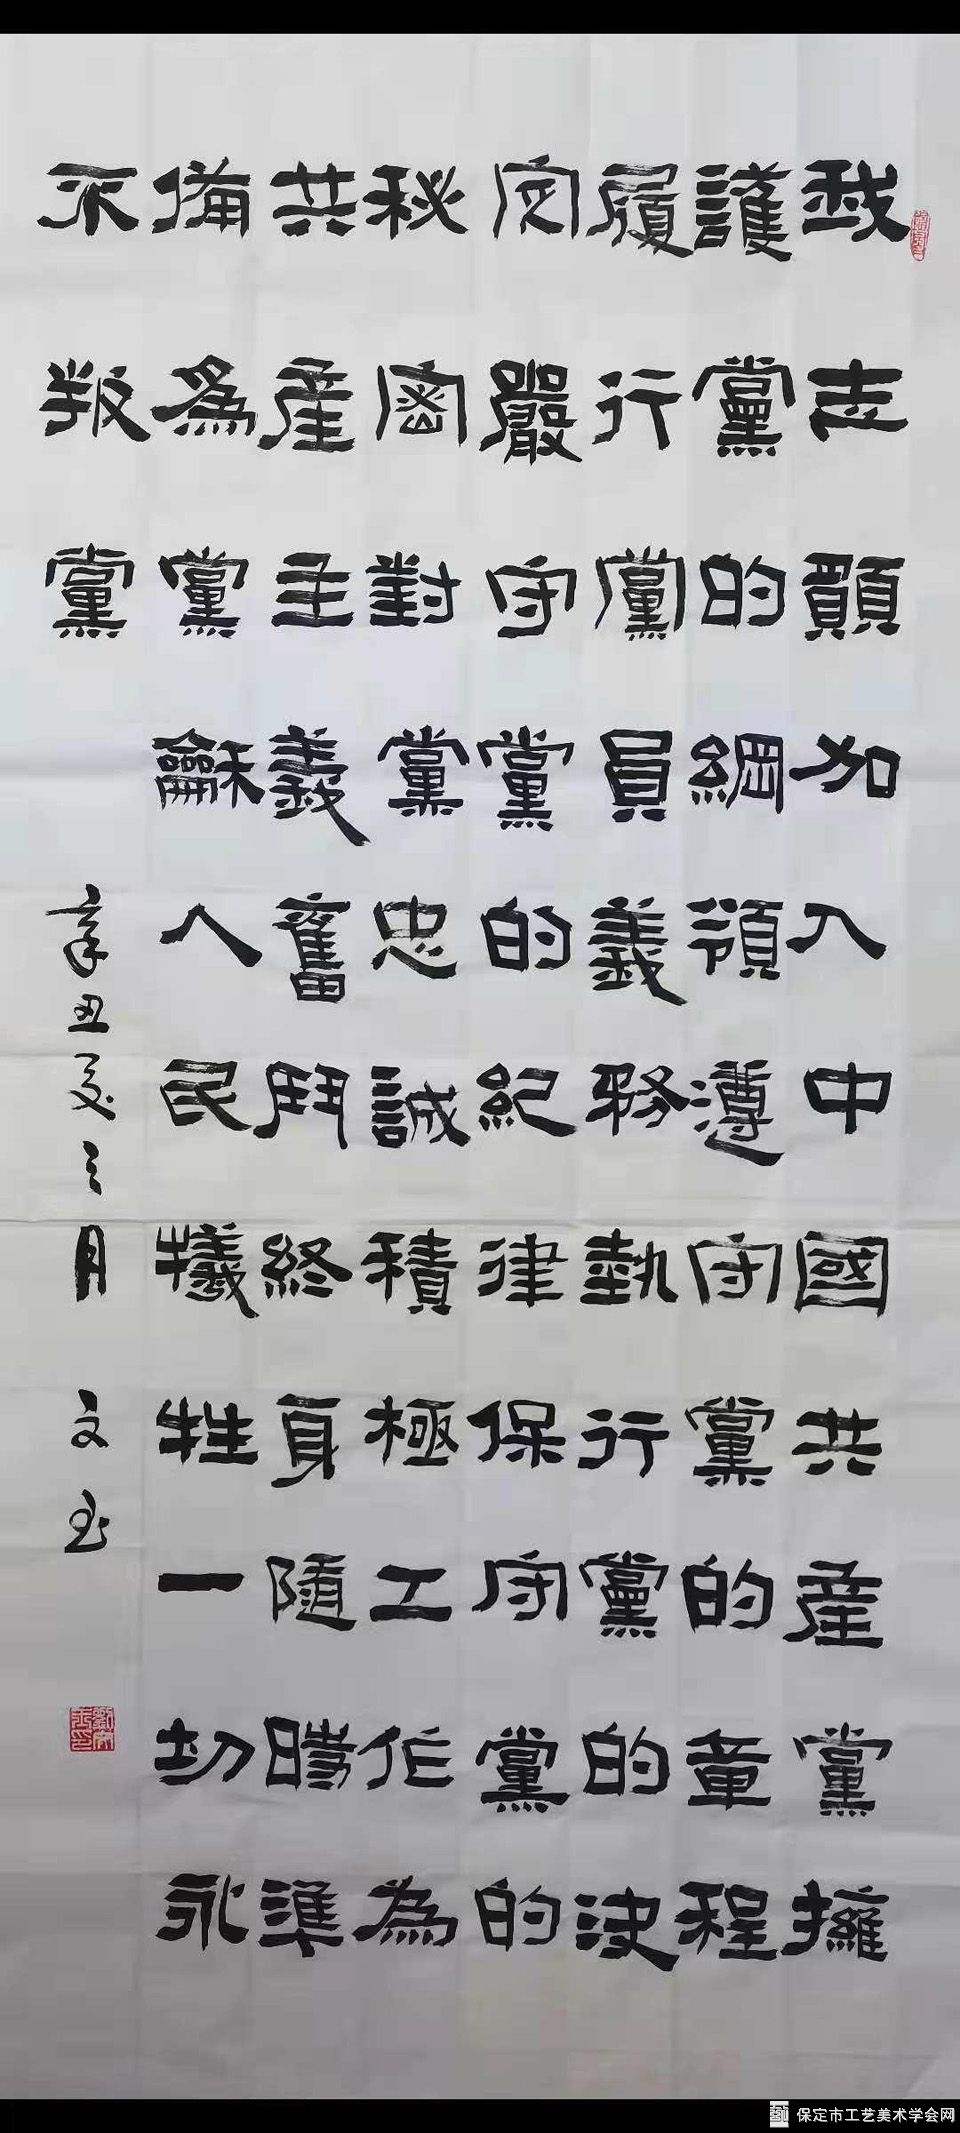 我志願加入中國共產黨擁
護黨的綱領遵守黨的章程
履行黨員義務執行黨的決
定嚴守黨的紀律保守黨的
秘密對黨忠誠積極工作為
共產主義奮鬥終身隨時準
備爲黨龢人民犧牲一切永
不叛黨
辛丑夏月 文玉
保定市工艺美术学会网